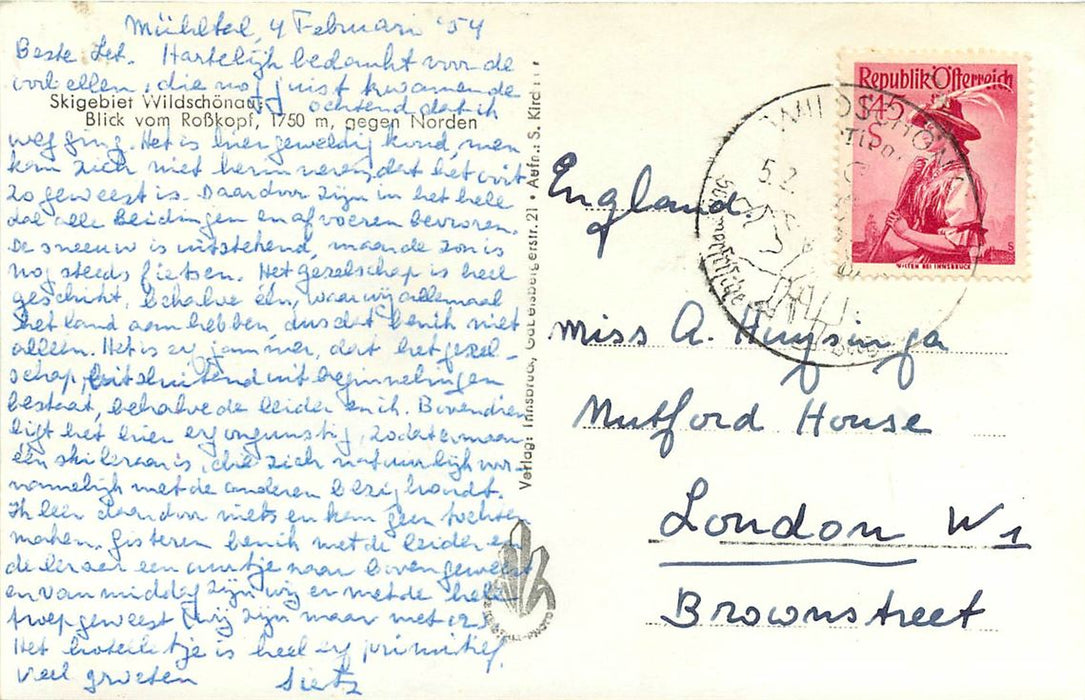 Mühltal, 4 Februari '54
Beste Jet. Hartelijk bedankt voor de
vorbellen, die nog juist kwamen de
Skigebiet Wildschönau:
ochtend dat ik
Blick vom Roßkopf, 1750 m, gegen Norden
weg ging. Het is hier geweldig koud, men
kan zich niet herinneren, dat het ooit
zo geweest is. Daardoor zijn in het hele
dal alle leidingen en afvoeren bevroren.
De sneeuw is uitstekend, maar de zon is
nog steeds fietsen. Het gezelschap is heel
geschikt, behalve één, waar wij allemaal
het land aan hebben, dus dat ben ik niet
alleen. Het is erg jammer, dat het gezel-
schap, uitsluitend uit beginnelingen
bestaat, behalve de leider en ik. Bovendien
ligt het hier erg ongunstig, zodat er maar
één skileraar is, die zich natuurlijk voor-
namelijk met de anderen bezig houdt.
Ik leer daardoor niets en kan geen tochten
maken. Gisteren ben ik met de leider en
de leraar een uurtje naar boven geweest
en van middag zijn wij er met de hele
troep geweest (wij zijn maar met
Het hotelletje is heel erg primitief.
Veel groeten Sietz
Verlag: Innsbruck, Gabelsbergerstr. 21 • Aufn.: S. Kird
Republik Österreich
1.45
S
WILTEN BEI INNSBRUCK
WILDSCHÖNAU
Tirol
5.2.
England.
Miss A. Huysinga
Mutford House
London W1
Brownstreet